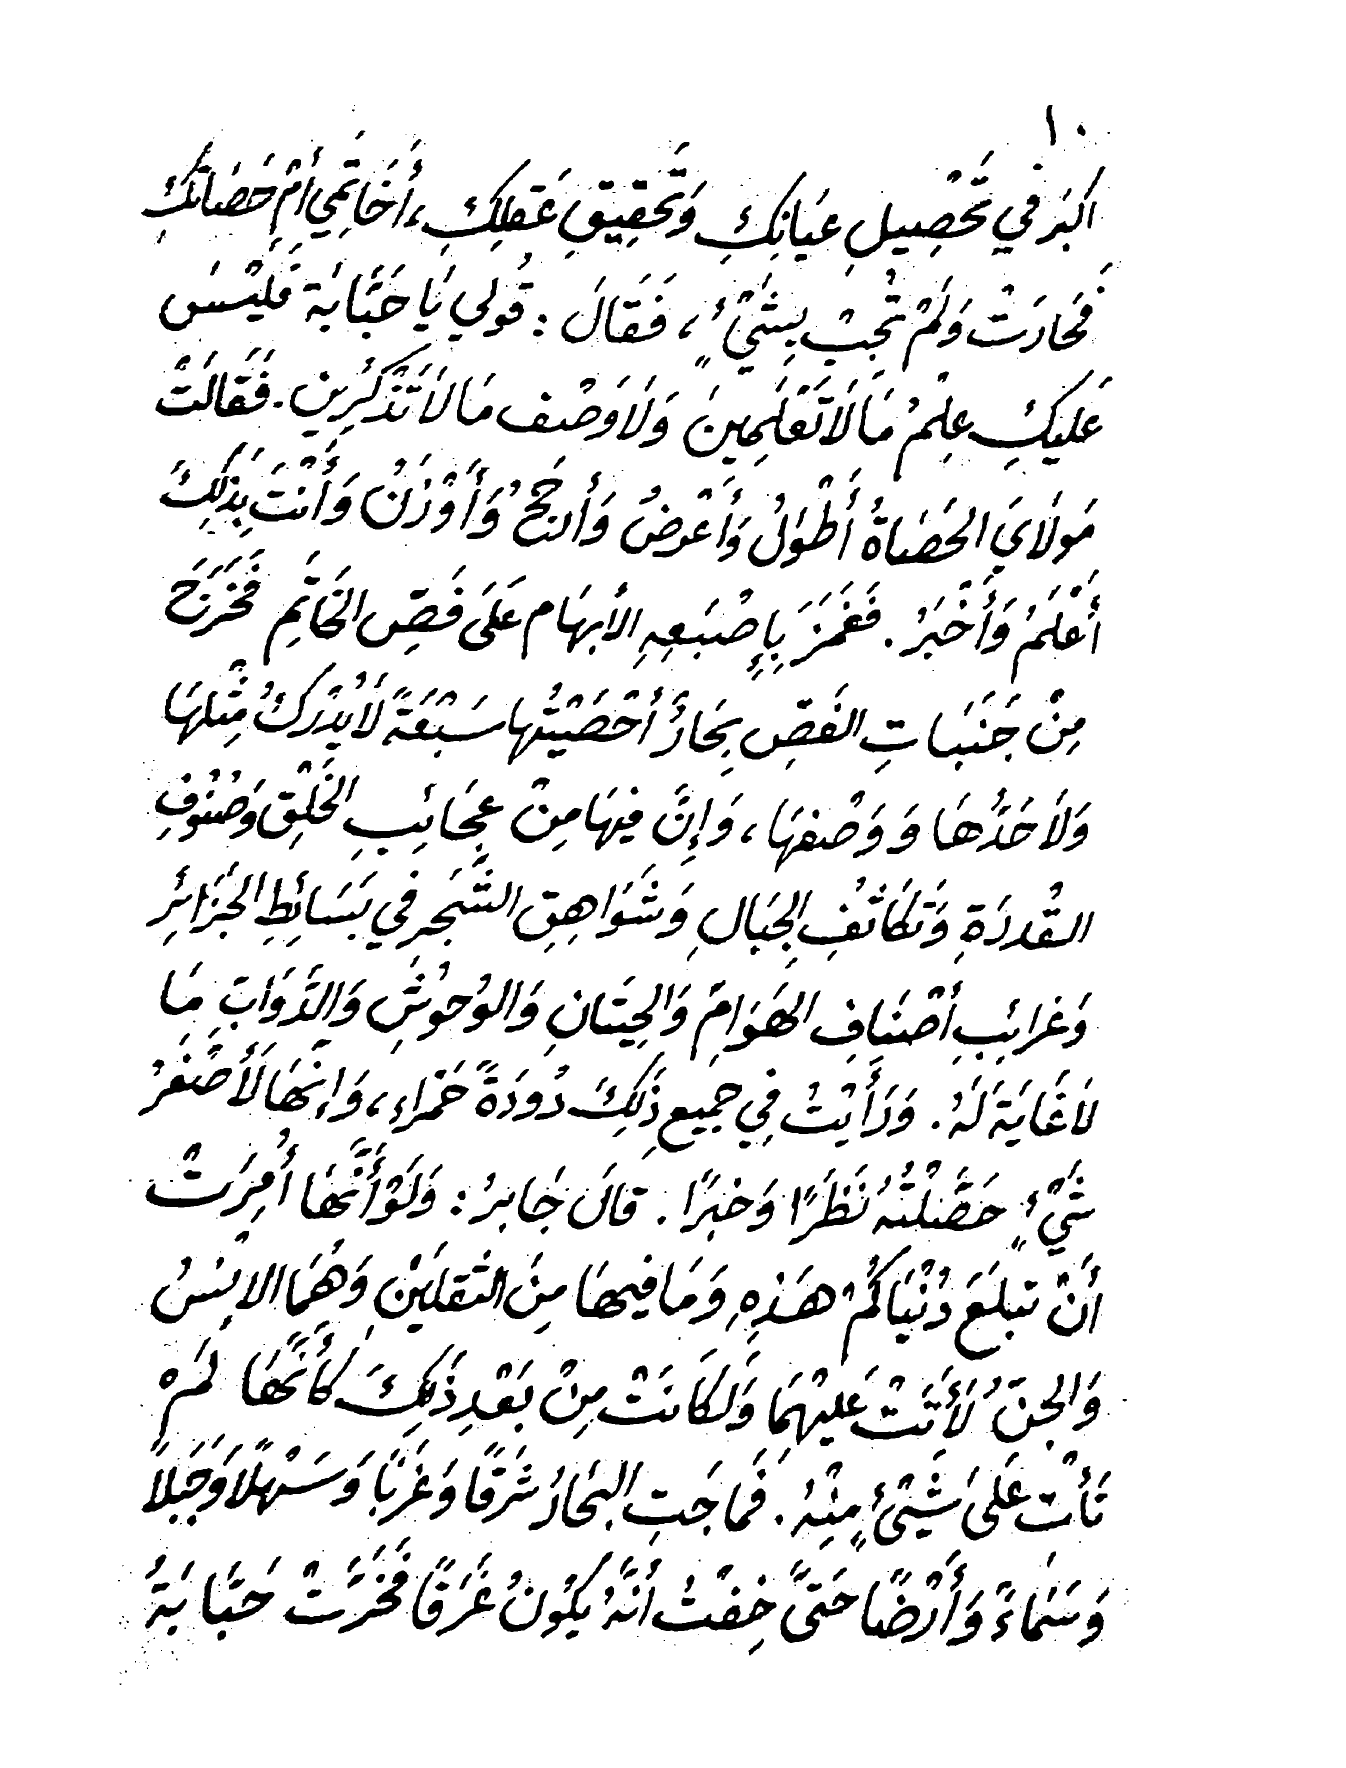 ١٠
اكبَر في تَحْصِيلِ عِيَانِكِ وَتَحْقِيقِ عَقلِكِ، أَخَاتِمِي أَمْ حَصَاتَكِ
فَحَارَتْ وَلَمْ تُجِبْ بِشَيْءٍ، فَقَالَ : قُولي يَا حَبَّابَة فَلَيْسَ
عَليكِ عِلمُ مَا لَا تَعْلَمِينَ وَلَا وَصْف مَا لَا تَذْكُرِين . فَقَالَتْ
مَولَايَ الحَصَاةُ أَطْوَلُ وَأَعْرَضُ وَأَرجَحُ وَأَوْزَنُ وَأَنْتَ بِذَلِكَ
أَعْلَمُ وَأَخْبَرُ . فَغَمَزَ بِإِصْبَعِهِ الأبهَام عَلَى فَصِّ الخَاتَمِ فَخَرَجَ
مِنْ جَنَبَاتِ الفَصِّ بِحَارٌ أَحْصَيْتُها سَبْعَةً لَا يُدْرَكُ مِثْلهَا
وَلَا حَدُّهَا وَ وَصْفهَا ، وَإِنَّ فِيهَا مِنْ عجَائِبِ الخَلْقِ وَصُنُوفِ
القُدرَةِ وَتَكَاثُفِ الجِبَالِ وَشَوَاهِقِ الشَّجَرِ في بَسَائِطِ الجَزَائِرِ
وَغرائِبِ أَصْنَافِ الهَوَامِّ وَالحِيتَانِ وَالوُحُوشِ وَالدَّوَابِّ مَا
لَا غَايَة لَهُ . وَرَأَيْتُ فِي جميعِ ذَلِكَ دُودَةً حَمْراءِ، وَإِنَّهَا لَأَصْغَرُ
شَيْءٍ حَصَّلْتُهُ نَظَرًا وَخبرًا . قالَ جَابِرُ : وَلَوْ أَنَّهَا أُمِرَتْ
أَنْ تبلَعَ دُنْيَاكُمْ هَذِهِ وَمَا فيهَا مِنَ الثقلَيْنِ وَهُمَا الإِنْسُ
وَالجِنّ لَأَتَتْ عَليْهِمَا وَلَكَانَتْ مِنْ بَعْدِ ذَلِكَ كَأَنَّهَا لم
تَأْتِ عَلَىَ شَيْئٍ مِنْهُ . فَمَاجَتِ البحَارُ شَرقًا وَغَربًا وَسَهْلًا وَجَبَلًا
وَسَمَاءً وَأَرْضًا حَتَّى خِفْتُ أَنَّهُ يَكُونُ غَرَقًا فَخَرَّتْ حَبَّابَةُ